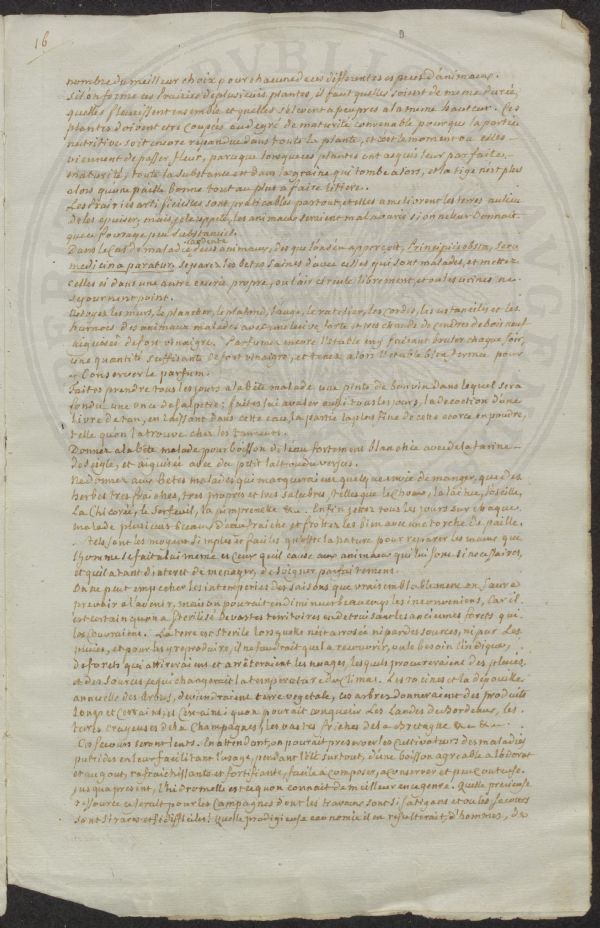 16
nombre du meilleur choix pour chacune de ces differentes especes d'animaux.
Si l'on forme ces Prairies de plusieurs plantes, il faut quelles soient de meme durée,
quelles fleurissent ensemble et quelles s'elevent a peu pres a la meme hauteur. Ces
plantes doivent etre coupées au degré de maturité convenable pour que la partie
nutritive soit encore repandue dans toute la plante, et c'est le moment ou elles
viennent de passer fleur, parceque lorsque ces plantes ont acquis leur parfaite
maturité, toute la substance est dans la graine qui tombe alors, et la tige n'est plus
alors qu'une paille bonne tout au plus a faire litiere.
Les Prairies artificielles sont praticables partout et elles ameliorent les terres au lieu
de les epuiser, mais je le repete, les animaux seroient mal nouris si on ne leur donnait
que ce fourage peu substantiel.
Dans le Cas de maladie de vos animaux, des que l'on s'en apperçoit, Principiis obsta, sero
medicina paratur, separez les betes saines d'avec celles qui sont malades, et mettez
celles ci dans une autre ecurie propre, ou l'air circule librement, et ou les urines ne
sejournent point.
Netoyez les murs, le plancher, le plafond, l'auge, le ratelier, les cordes, les ustanciles et les
harnois des animaux malades avec une lecive forte et tres chaude de cendre de bois neuf
aiguisée de fort vinaigre. Parfumez encore l'etable en y faisant bruler chaque soir,
une quantité suffisante de fort vinaigre, et tenez alors l'etable bien fermée pour
y Conserver le parfum.
Faites prendre tous les jours a la bete malade une pinte de bon vin dans lequel sera
fondue une once de salpetre; faites lui avaler aussi tous les jours, la decoction d'une
livre de tan, en laissant dans cette eau la partie la plus fine de cette ecorce en poudre,
telle qu'on la trouve chez les tanneurs.
Donnez a la bête malade pour boisson de l'eau fortement blanchie avec de la farine
de seigle, et aiguisée avec du petit lait ou du verjus.
Ne donnez aux Betes malades qui marqueraient quelque envie de manger, que des
herbes tres fraiches, tres propres et tres salubres telles que le Choux, la laitue, l'oseille,
La Chicorée, le Cerfeuil, la pimprenelle &a. Enfin jettez tous les jours sur chaque
malade plusieurs Sceaux d'eau fraiche et frottez les bien avec une torche de paille.
Tels, sont les moyens simples et faciles qu'offre la nature pour reparer les maux que
l'homme se fait a lui meme et Ceux qu'il cause aux animaux qui lui sont si necessaires,
et qu'il a tant d'interet de menager, de soigner parfaitement.
On ne peut empecher les intemperies des saisons que vraisemblablement on saura
prevoir a l'avenir, mais on pourrait en diminuer beaucoup les inconveniens, Car il
est certain qu'on a sterilisé de vastes territoires en detruisant les anciennes forets qui
les Couvraient. La terre est sterile lorsqu'elle n'est arrosée ni par des sources, ni par les
pluies, et pour les y reproduire, il ne faudrait que la recouvrir, au besoin l'indique,
de forets qui attireraient et arrêteraient les nuages, lesquels procureraient des pluies
et des sources ce qui changerait la temperature du Climat. Les racines et la depouille
annuelle des arbres, deviendraient terre vegetale, ces arbres donneraient des produits
longs et Certains; et c'est ainsi qu'on pourait conquerir Les Landes de Bordeaux, les
terres crayeuses de la Champagne, les vastes friches de la Bretagne &a &a
Ces secours seront lents. En attendant, on pourait preserver les cultivateurs des maladies
putrides en leur facilitant l'usage, pendant l'Eté surtout, d'une boisson agreable a l'odorat
et au gout, rafraichissante et fortifiante, facile a composer, a conserver et peu couteuse.
jusqu'a present, l'hidromelle est ce qu'on connait de meilleur en ce genre. Quelle precieuse
ressource ce serait pour les campagnes dont les travaux sont si fatigans et ou les secours
sont si rares et si difficiles! Quelle prodigieuse economie il en resulterait, d'hommes, de